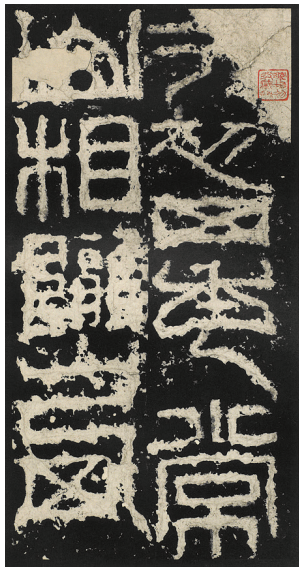 元初四年常
山相隴西